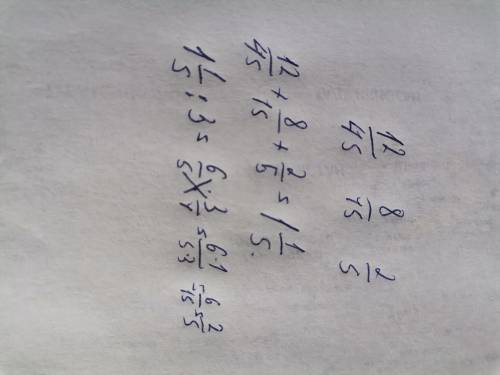 12/45 8/15 2/5
12/45 + 8/15 + 2/5 = 1 1/5.
1 1/5 : 3 = 6/5 : 3/1 = 6·1/5·3 = 6/15 = 2/5